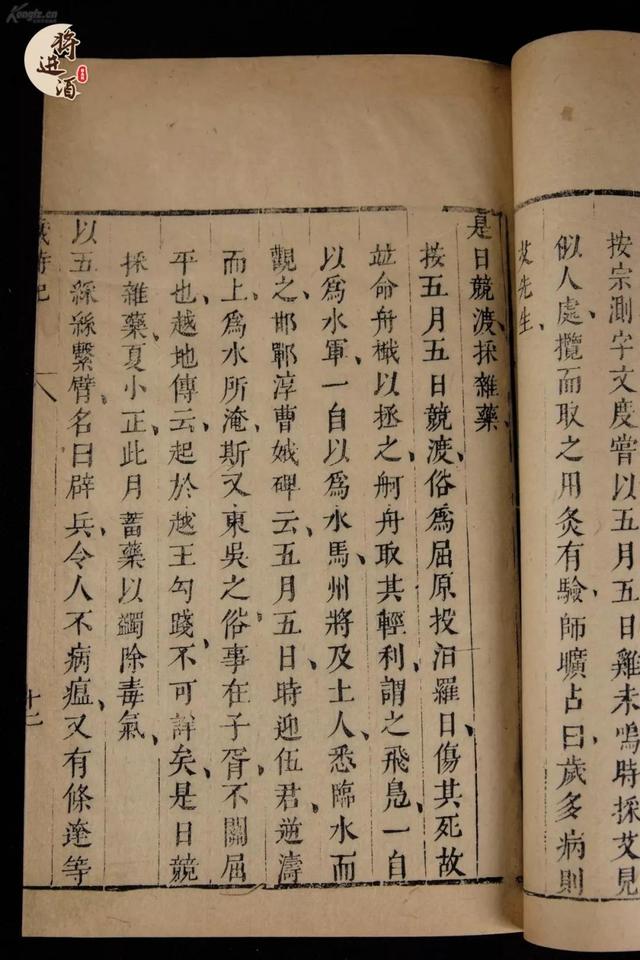 Kongfz.cn
将进酒
按宗測字文度嘗以五月五日雞未鳴時採艾見
似人處攬而取之用灸有驗師曠占曰歲多病則
艾先生
是日競渡採雜藥
按五月五日競渡俗爲屈原投汨羅日傷其死故
並命舟檝以拯之舸舟取其輕利謂之飛鳧一自
以爲水軍一自以爲水馬州將及土人悉臨水而
觀之邯鄲淳曹娥碑云五月五日時迎伍君逆濤
而上爲水所淹斯又東吳之俗事在子胥不關屈
平也越地傳云起於越王勾踐不可詳矣是日競
採雜藥夏小正此月蓄藥以蠲除毒氣
以五綵絲繫臂名曰辟兵令人不病瘟又有條達等
歲時記 八 十二